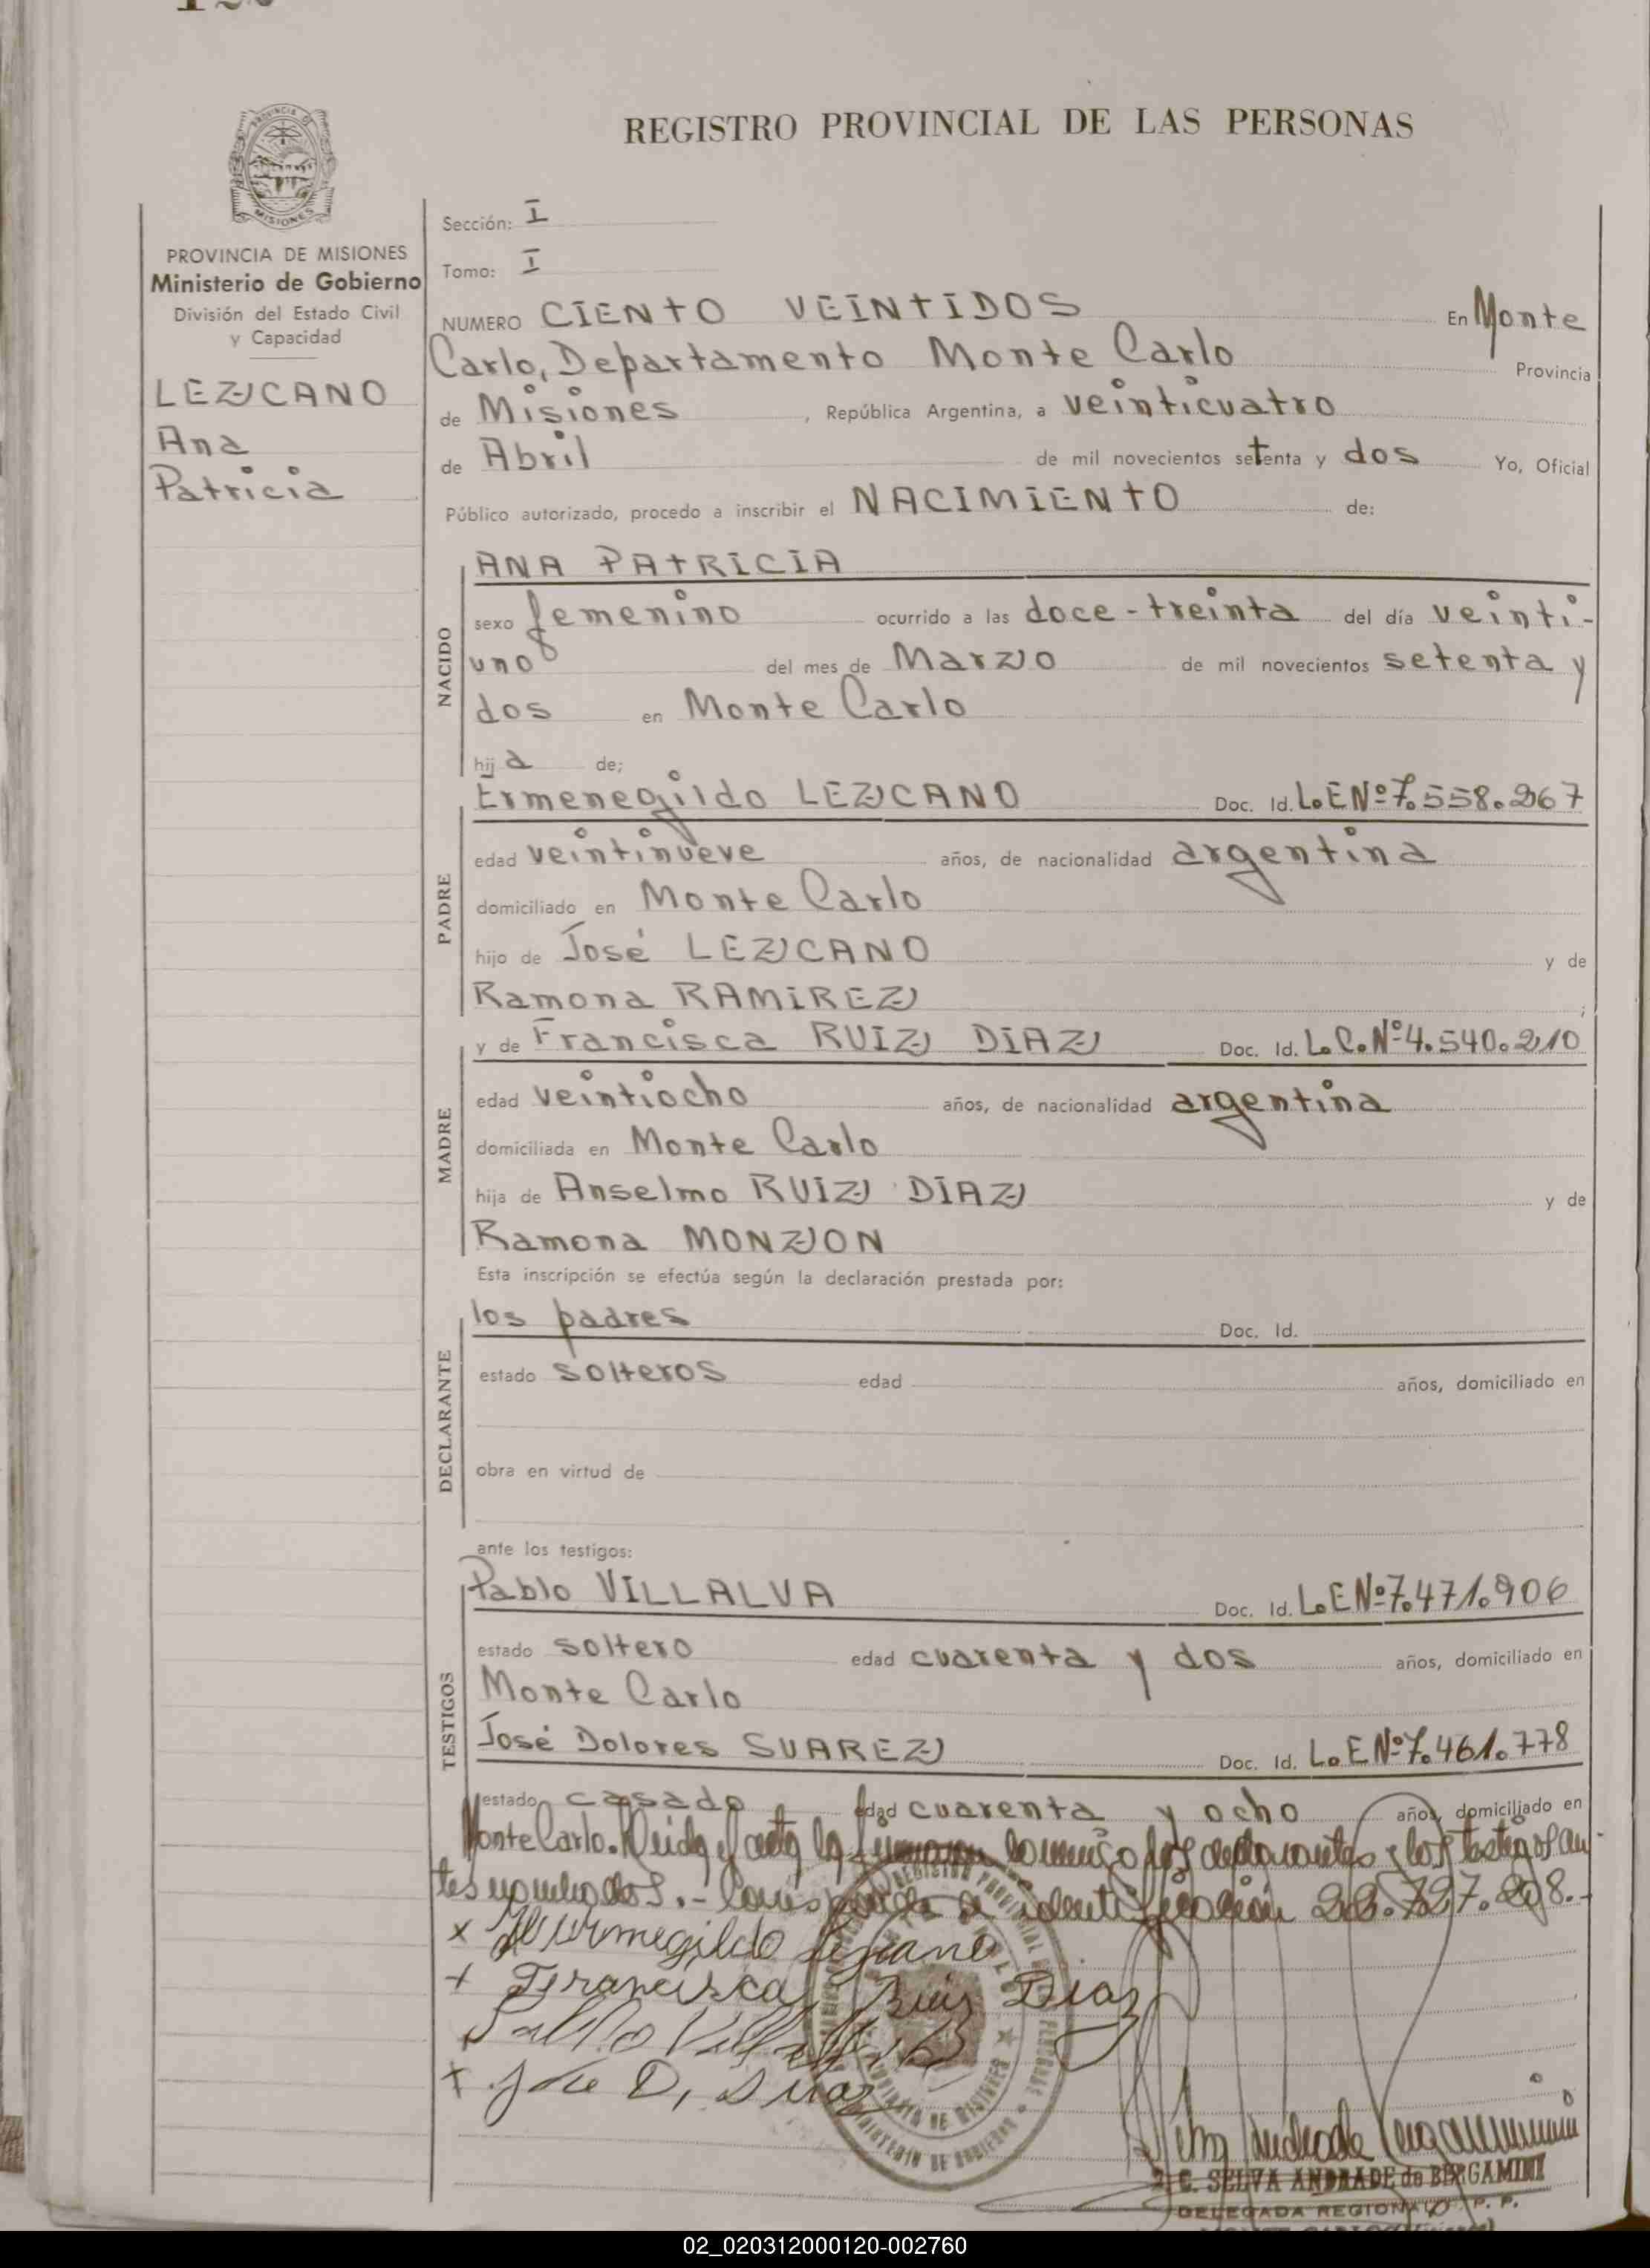 REGISTRO PROVINCIAL DE LAS PERSONAS
PROVINCIA DE MISIONES
Ministerio de Gobierno
División del Estado Civil
y Capacidad
LEZCANO
Ana
Patricia
Sección: I
Tomo: I
NUMERO CIENTO VEINTIDOS En Monte
Carlo, Departamento Monte Carlo Provincia
de Misiones, República Argentina, a veinticuatro
de Abril de mil novecientos setenta y dos Yo, Oficial
Público autorizado, procedo a inscribir el NACIMIENTO de:
NACIDO
ANA PATRICIA
sexo femenino ocurrido a las doce-treinta del día veinti-
uno del mes de Marzo de mil novecientos setenta y
dos en Monte Carlo
hija de;
PADRE
Ermenegildo LEZCANO Doc. Id. L.E Nº 7.558.267
edad veintinueve años, de nacionalidad argentina
domiciliado en Monte Carlo
hijo de José LEZCANO y de
Ramona RAMIREZ ;
MADRE
y de Francisca RUIZ DIAZ Doc. Id. L.C. Nº 4.540.210
edad veintiocho años, de nacionalidad argentina
domiciliada en Monte Carlo
hija de Anselmo RUIZ DIAZ y de
Ramona MONZON
Esta inscripción se efectúa según la declaración prestada por:
DECLARANTE
los padres Doc. Id.
estado solteros edad años, domiciliado en
obra en virtud de
ante los testigos:
TESTIGOS
Pablo VILLALVA Doc. Id. L.E Nº 7.471.906
estado soltero edad cuarenta y dos años, domiciliado en
Monte Carlo
José Dolores SUAREZ Doc. Id. L.E Nº 7.461.778
estado casado edad cuarenta y ocho años, domiciliado en
Monte Carlo. Leida el acta la firman conmigo los declarantes y los testigos an-
tes nombrados.- Corresponde a identificación 22.727.208.-
x Hermegildo Lezcano
+ Francisca Ruiz Diaz
Pablo Villalva
+ Jose D, Suaz
C. SELVA ANDRADE de BERGAMINI
DELEGADA REGIONAL R. P. P.
02_020312000120-002760